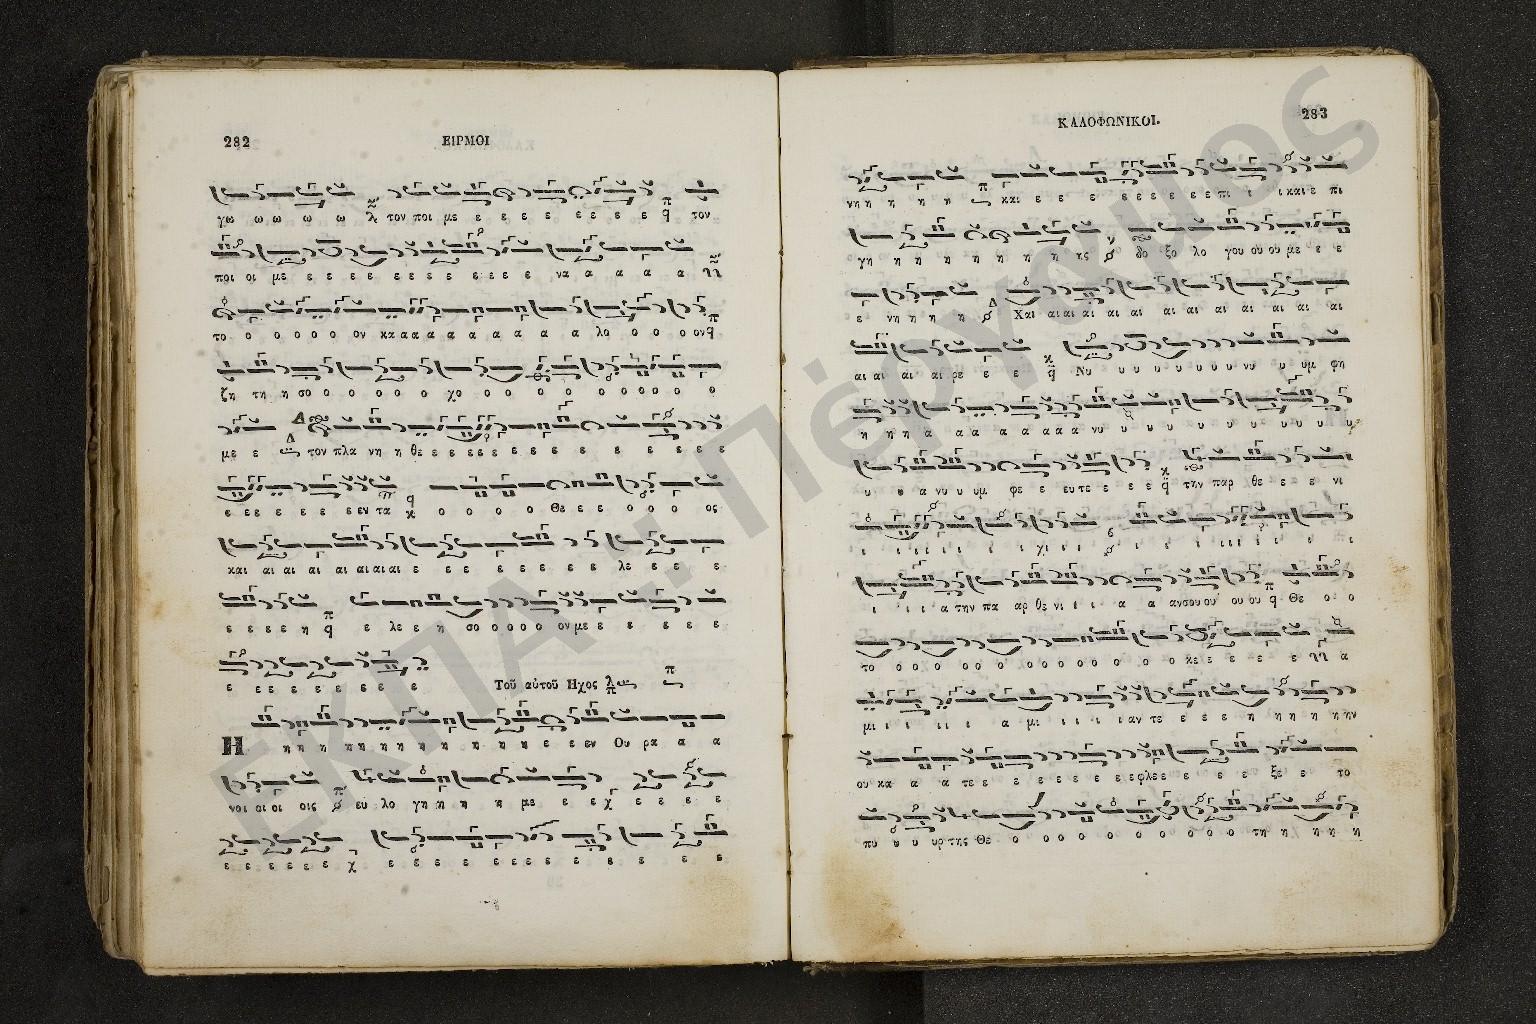 282
ΕΙΡΜΟΙ
γω ω ω ω ω τον ποι με ε ε ε ε ε ε ε ε τον
ποι οι με ε ε ε ε ε ε ε ε ε ε ε να α α α α
το ο ο ο ο ο ον κα α α α α α α α α α α λο ο ο ο ον
ζη τη η σο ο ο ο ο ο χο ο ο ο ο ο ο ο ο ο ο ο
με ε τον πλα νη η θε ε ε ε ε ε ε ε ε ε ε ε ε ε ε
ε ε ε ε ε ε εν τα ο ο ο ο Θε ε ε ο ο ο ος
και αι αι αι αι αι αι αι ε ε ε ε ε ε ε ε λε ε ε ε
ε ε ε ε η ε λε ε η σο ο ο ο ο ον με ε ε ε ε ε ε
ε ε ε ε ε ε ε ε ε
Τοῦ αὐτοῦ Ηχος
Η η η η η η η η η η η η η ε ε εν Ου ρα α α
νοι οι οι οις ευ λο γη η η η η με ε ε χ ε ε ε ε
ε ε ε ε ε ε χ ε ε ε ε ε ε ε ε ε ε ε ε ε ε
ΚΑΛΟΦΩΝΙΚΟΙ.
283
νη η η η η και ε ε ε ε ε ε ε ε ε πι ι ι και ε πι
γη η η η η η η η η ης δο ξο λο γου ου ου με ε ε
ε νη η η η Χαι αι αι αι αι αι αι αι αι αι αι αι αι αι
αι αι αι αι ρε ε ε Νυ υ υ υ υ υ υ υ νυ υ υμ φη
η η η α α α α α α α νυ υ υ υ υ υ υ υ υ υ υ υ
υ υ α νυ υ υμ φε ε ευ τε ε ε ε την παρ θε ε ε νι
ι ι ι ι ι ι χι ι ι ι ι ι ι ι ι ι ι ι
ι ι ι α την πα αρ θε νι ι ι α α αν σου ου ου ου Θε ο ο
το ο ο χο ο ο ο ο ο ο ο ο ο ο κε ε ε ε ε α
μι ι ι ι ι α μι ι ι ι ι αν τε ε ε ε η η η η ην
ου κα α α τε ε ε ε ε ε ε ε ε φλε ε ε ε ε ε ξε ε το
πυ υ υ υρ της Θε ο ο ο ο ο ο ο ο ο ο τη η η η η
ΕΚΠΑ :: Πέργαμος